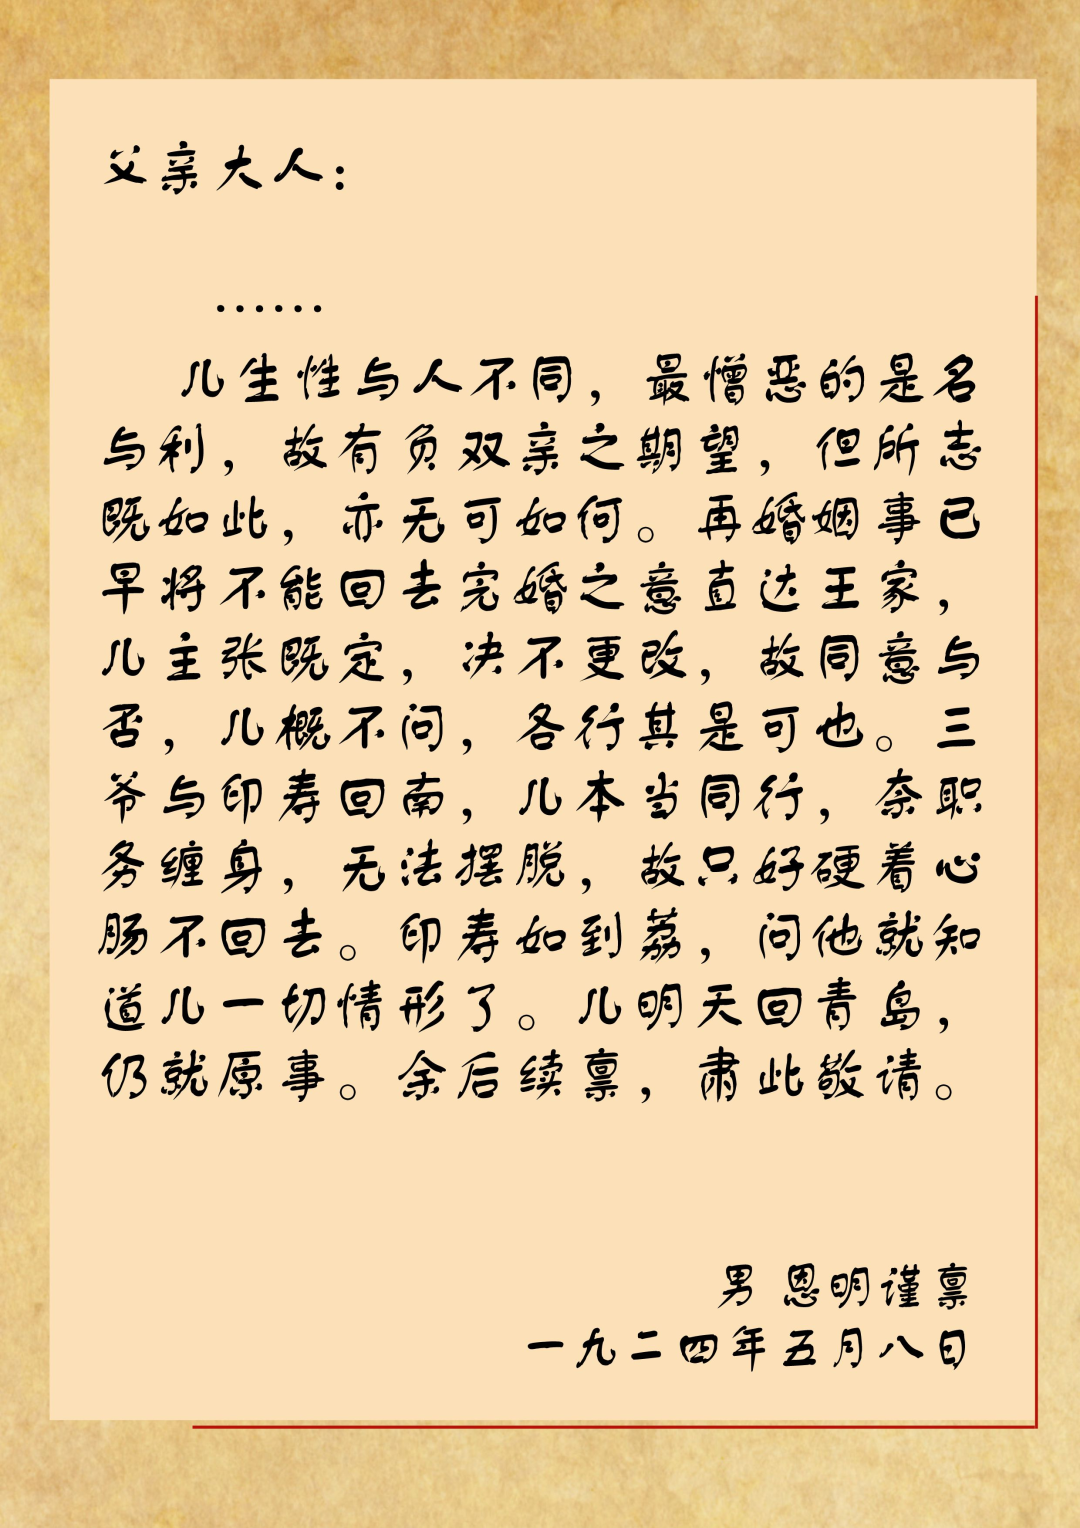 父亲大人：
……
儿生性与人不同，最憎恶的是名
与利，故有负双亲之期望，但所志
既如此，亦无可如何。再婚姻事已
早将不能回去完婚之意直达王家，
儿主张既定，决不更改，故同意与
否，儿概不问，各行其是可也。三
爷与印寿回南，儿本当同行，奈职
务缠身，无法摆脱，故只好硬着心
肠不回去。印寿如到荔，问他就知
道儿一切情形了。儿明天回青岛，
仍就原事。余后续禀，肃此敬请。
男 恩明谨禀
一九二四年五月八日